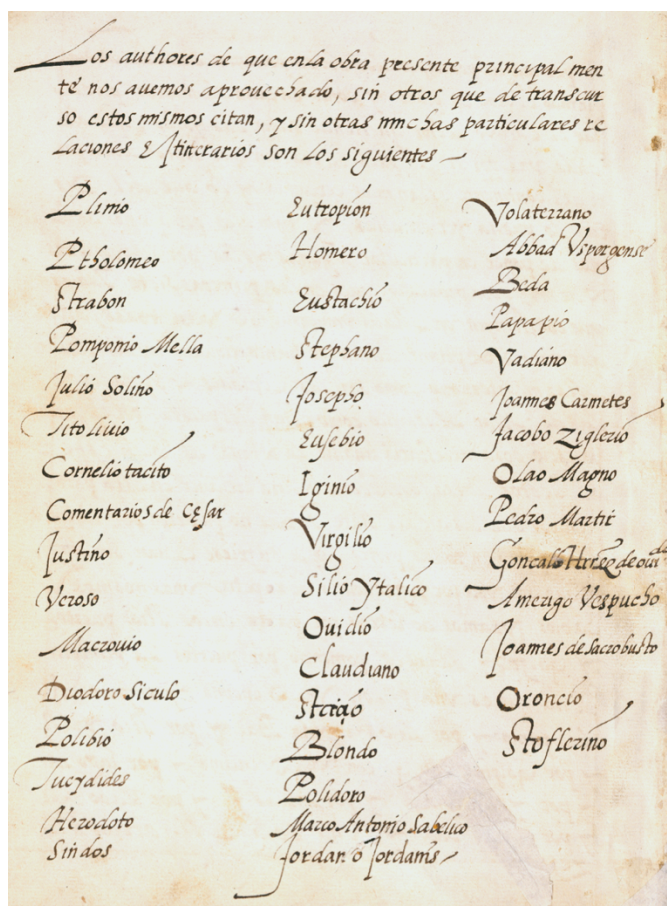 Los authores de que en la obra presente principal men
te nos auemos aprouechado, sin otros que de transcur
so estos mismos citan, y sin otras muchas particulares re
laciones E Itinerarios son los siguientes
Plinio
Ptholomeo
Strabon
Pomponio Mella
Julio Solino
Tito livio
Cornelio tacito
Comentarios de Cęsar
Justino
Veroso
Macrouio
Diodoro Siculo
Polibio
Tucydides
Herodoto
Sindos
Eutropion
Homero
Eustachio
Stephano
Josepho
Eusebio
Iginio
Virgilio
Silio Ytalico
Ouidio
Claudiano
Blondo
Polidoro
Marco Antonio Sabelico
Jordan o Jordanis
Volaterrano
Abbad Vspergense
Beda
Papa pio
Vadiano
Joannes Carmetes
Jacobo Ziglerio
Olao Magno
Pedro Martir
Goncalo de ouiedo
Amerigo Vespucho
Joannes de sacrobusto
Oroncio
Stoflerino